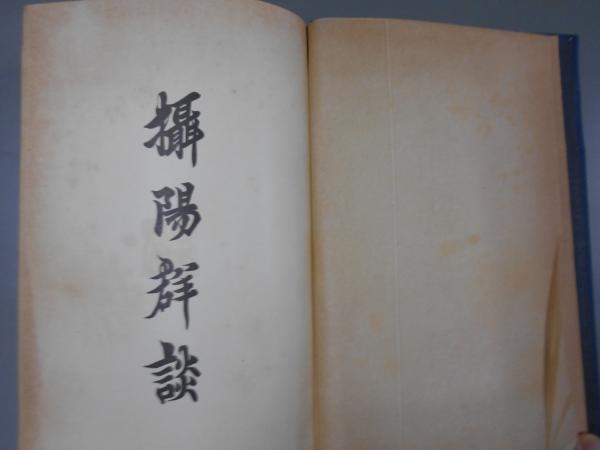 攝陽群談